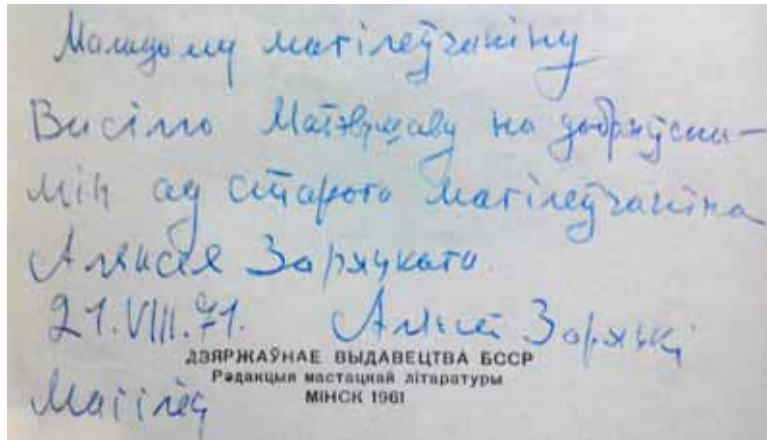 Маладому магілеўчаніну
Васілю Матэушаву на добры ўспа-
мін ад старога магілеўчаніна
Аляксея Зарыцкага.
21.VIII.71. Аляксей Зарыцкі
ДЗЯРЖАЎНАЕ ВЫДАВЕЦТВА БССР
Рэдакцыя мастацкай літаратуры
МІНСК 1961
Магілёў